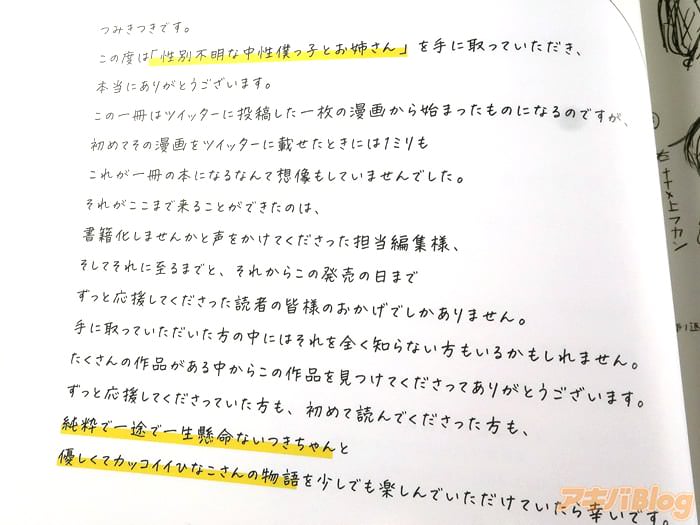 つみきつきです。
この度は「性別不明な中性僕っ子とお姉さん」を手に取っていただき、
本当にありがとうございます。
この一冊はツイッターに投稿した一枚の漫画から始まったものになるのですが、
初めてその漫画をツイッターに載せたときには1ミリも
これが一冊の本になるなんて想像もしていませんでした。
それがここまで来ることができたのは、
書籍化しませんかと声をかけてくださった担当編集様、
そしてそれに至るまでと、それからこの発売の日まで
ずっと応援してくださった読者の皆様のおかげでしかありません。
手に取っていただいた方の中にはそれを全く知らない方もいるかもしれません。
たくさんの作品がある中からこの作品を見つけてくださってありがとうございます。
ずっと応援してくださっていた方も、初めて読んでくださった方も、
純粋で一途で一生懸命ないつきちゃんと
優しくてカッコイイひなこさんの物語を少しでも楽しんでいただけていたら幸いです。
上フカン
アキバBlog